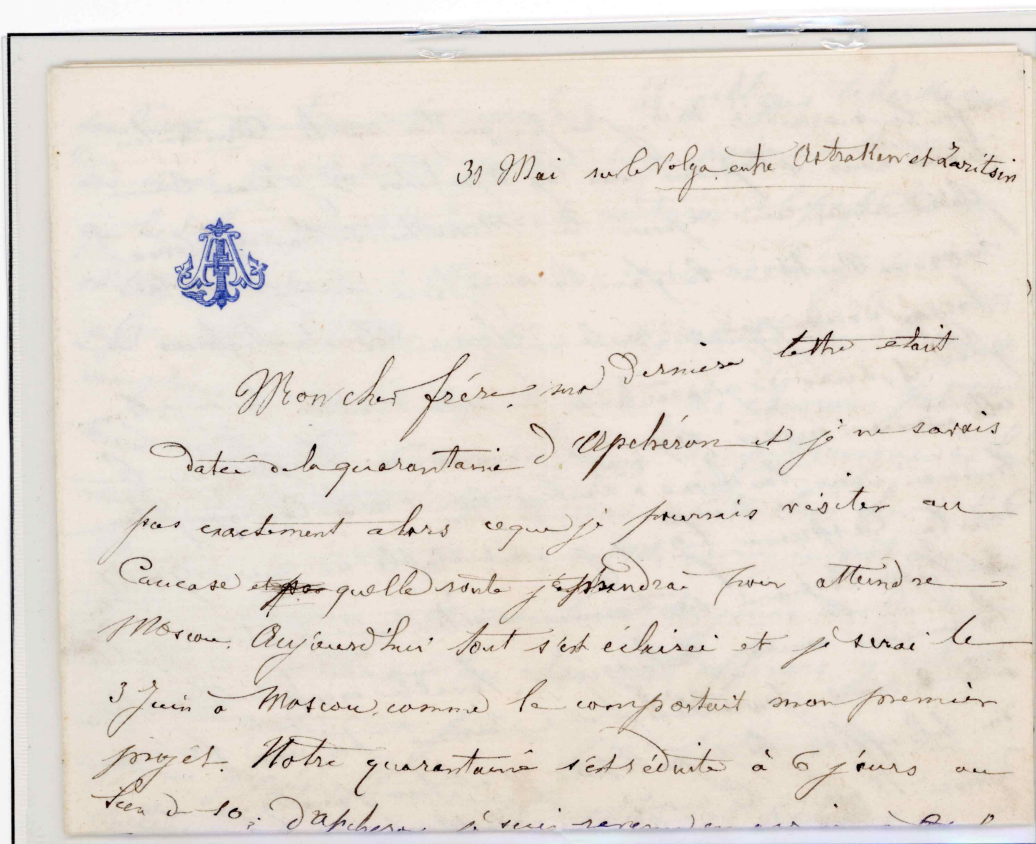 30 Mai sur le Volga entre Astrakan et Zaritsin
Mon cher frère, ma dernière lettre était
datée de la quarantaine d'Apchéron et je ne savais
pas exactement alors ce que je pourrais visiter au
Caucase et quelle route je prendrai pour atteindre
Moscou. Aujourd'hui tout s'est éclairci et je serai le
3 Juin à Moscou, comme le comportait mon premier
projet. Notre quarantaine s'est réduite à 6 jours au
lieu de 10; d'Apchéron je suis revenu en